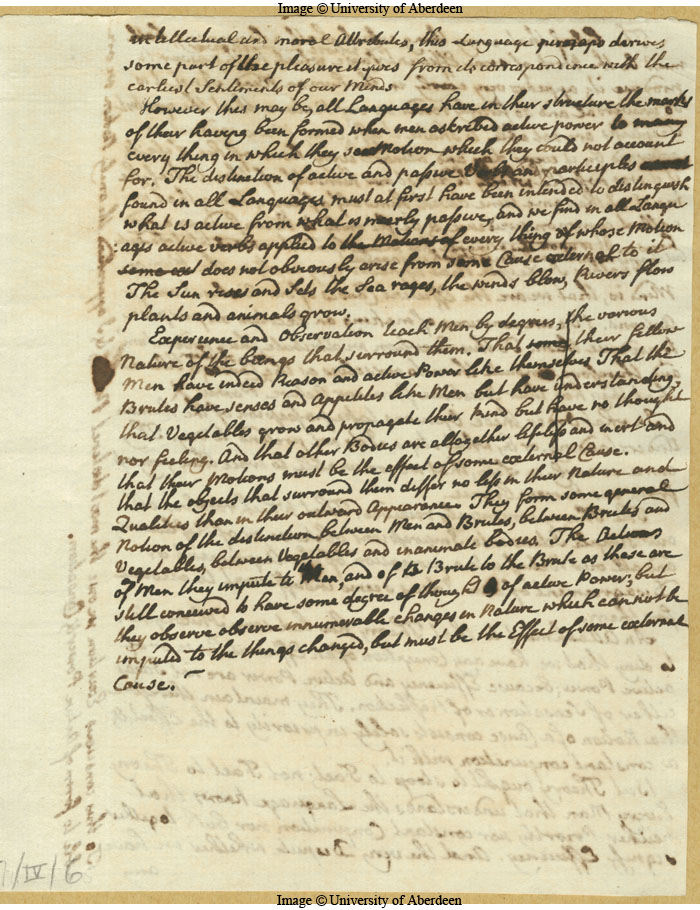 Image © University of Aberdeen
intellectual and moral Attributes, this Language perhaps derives
some part of the pleasure it gives from its correspondence with the
earliest Sentiments of our Minds
However this may be, all Languages have in their structure the marks
of their having been formed when men ascribed active power to many
every thing in which they saw Motion which they could not account
for. The distinction of active and passive Verbs and participles
found in all Languages must at first have been intended to distinguish
what is active from what is meerly passive, and we find in all Langu
ages active verbs applied to the Motions of every thing of whose Motion
does not obviously arise from some Cause external to it
The Sun rises and Sets the Sea rages, the winds blow, Rivers flow
plants and animals grow.
Experience and Observation teach Men by degrees, the various
Nature of the beings that surround them. That some their fellow
Men have indeed Reason and active Power like themselves That the
Brutes have senses and Appetites like Men but have understanding,
that Vegetables grow and propagate their kind but have no thought
nor feeling. And that other Bodies are altogether lifeless and inert and
that their Motions must be the effect of some external Cause.
that the objects that surround them differ no less in their Nature and
Qualities than in their outward Appearance. They form some general
Notion of the distinction between Men and Brutes, between Brutes and
Vegetables, between Vegetables and inanimate bodies. The Actions
of Men they impute to Men, and of the Brute to the Brute as these are
still conceived to have some degree of thought & of active Power; but
they observe observe innumerable changes in Nature which can not be
imputed to the things changed, but must be the Effect of some external
Cause.
/IV/6
Image © University of Aberdeen